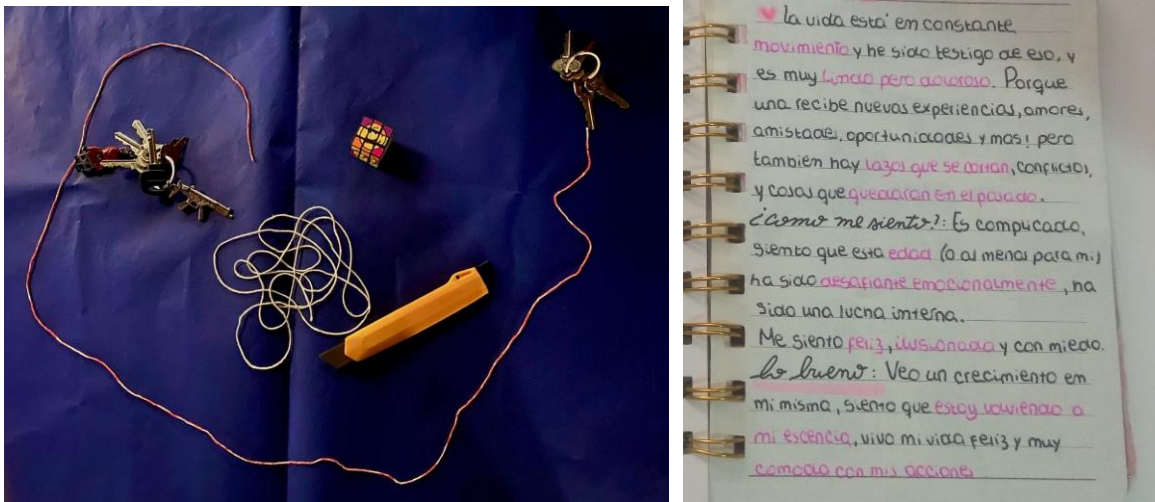 La vida está en constante
movimiento y he sido testigo de eso, y
es muy lindo pero doloroso. Porque
una recibe nuevas experiencias, amores,
amistades, oportunidades y mas! pero
tambien hay lazos que se cortan, conflictos,
y cosas que quedaran en el pasado.
¿como me siento?: Es complicado,
siento que esta edad (o al menos para mi)
ha sido desafiante emocionalmente, ha
sido una lucha interna.
Me siento feliz, ilusionada y con miedo.
lo bueno: Veo un crecimiento en
mi misma, siento que estoy volviendo a
mi escencia, vivo mi vida feliz y muy
comoda con mis acciones